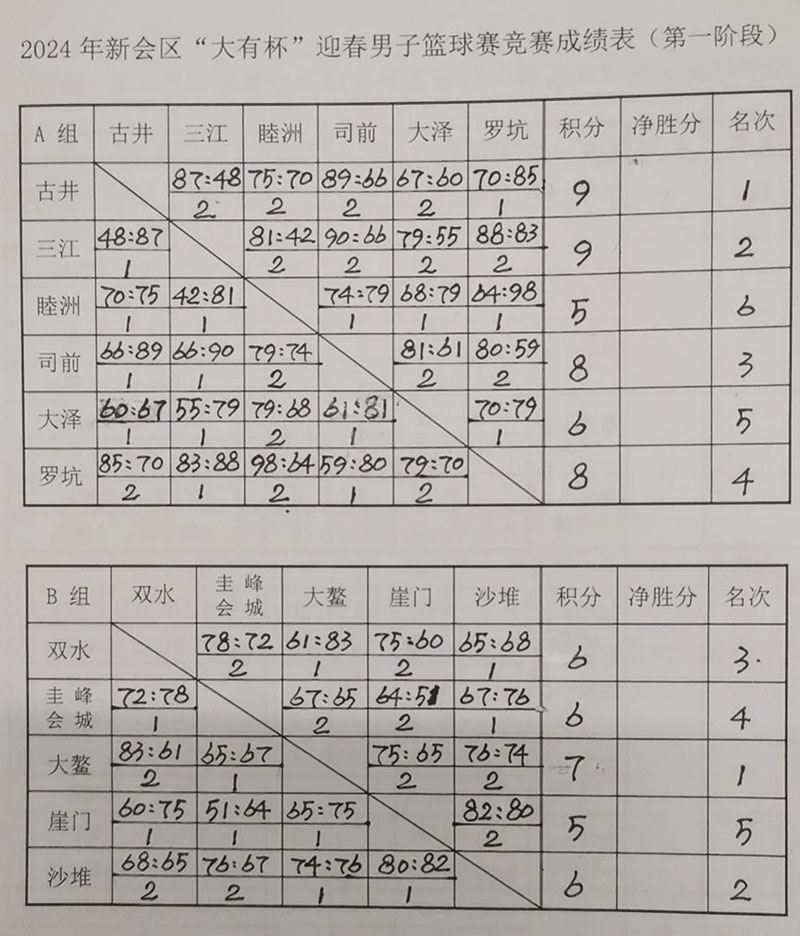 2024年新会区“大有杯”迎春男子篮球赛竞赛成绩表（第一阶段）
A 组 古井 三江 睦洲 司前 大泽 罗坑 积分 净胜分 名次
古井 87:48 75:70 89:66 67:60 70:85 9 1
2 2 2 2 1
三江 48:87 81:42 90:66 79:55 88:83 9 2
1 2 2 2 2
睦洲 70:75 42:81 74:79 68:79 64:98 5 6
1 1 1 1 1
司前 66:89 66:90 79:74 81:61 80:59 8 3
1 1 2 2 2
大泽 60:67 55:79 79:68 61:81 70:79 6 5
1 1 2 1 1
罗坑 85:70 83:88 98:64 59:80 79:70 8 4
2 1 2 1 2
B 组 双水 圭峰会城 大鳌 崖门 沙堆 积分 净胜分 名次
双水 78:72 61:83 75:60 65:68 6 3
2 1 2 1
圭峰会城 72:78 67:65 64:51 67:76 6 4
1 2 2 1
大鳌 83:61 65:67 75:65 76:74 7 1
2 1 2 2
崖门 60:75 51:64 65:75 82:80 5 5
1 1 1 2
沙堆 68:65 76:67 74:76 80:82 6 2
2 2 1 1